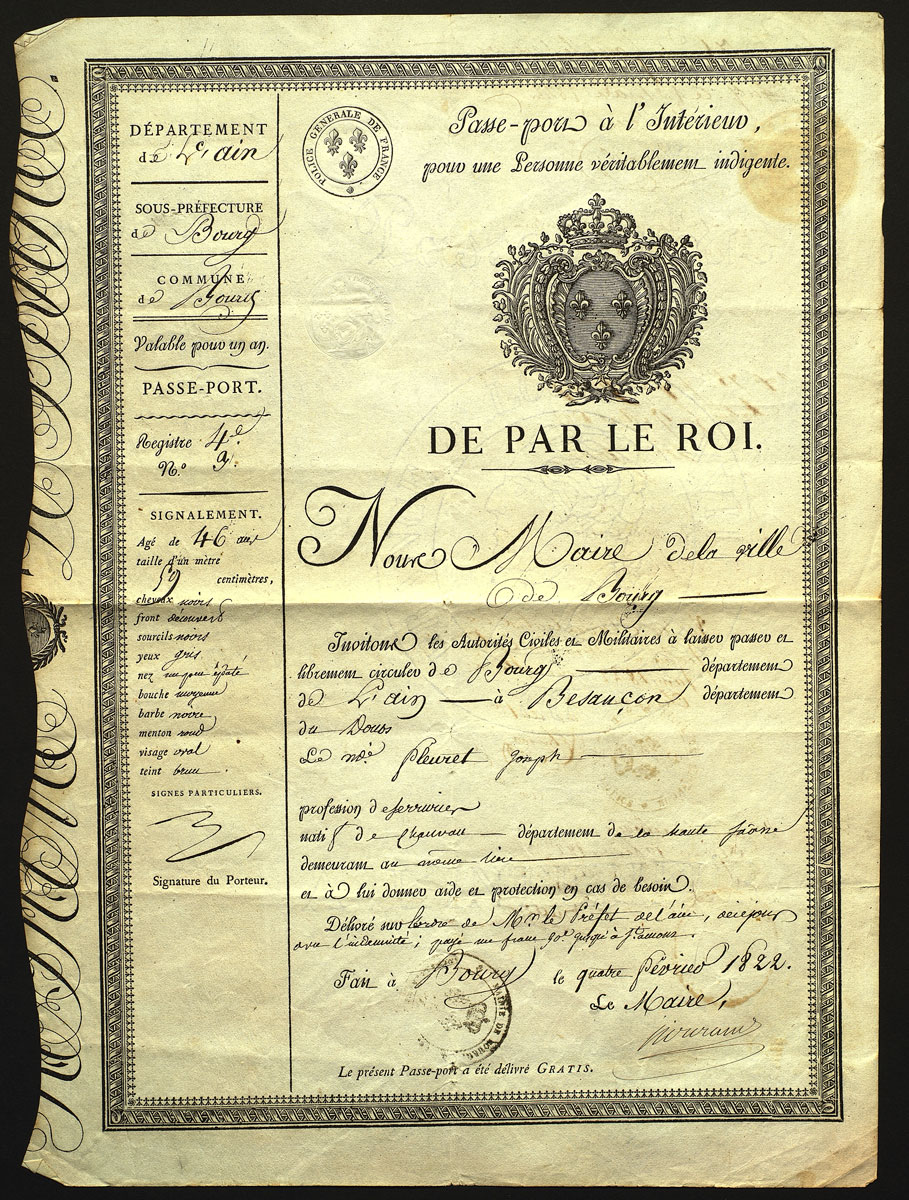 DÉPARTEMENT
de L'ain
SOUS-PRÉFECTURE
de Bourg
COMMUNE
de Bourg
Valable pour un an.
PASSE-PORT.
Registre 4e
N.º 9.
SIGNALEMENT.
Agé de 46 ans
taille d'un mètre
59 centimètres,
cheveux noirs
front découvert
sourcils noirs
yeux gris
nez un peu épaté
bouche moyenne
barbe noire
menton rond
visage oval
teint brun
SIGNES PARTICULIERS.
Signature du Porteur.
POLICE GÉNÉRALE DE FRANCE
Passe-port à l'Intérieur,
pour une Personne véritablement indigente.
DE PAR LE ROI.
Nous Maire de la ville
de Bourg
Invitons les Autorités Civiles et Militaires à laisser passer et
librement circuler de Bourg département
de L'ain à Besançon département
du Doubs
Le né. pleuret joseph
profession de serrurier
natif de département de la haute Saône
demeurant au même lieu
et à lui donner aide et protection en cas de besoin.
Délivré sur l'ordre de Mr le Préfet de l'ain, de ce jour
avec l'indemnité; payé un franc 90c jusqu'à St amour.
Fait à Bourg le quatre février 1822.
Le Maire,
MAIRIE DE BOURG
Le présent Passe-port a été délivré GRATIS.